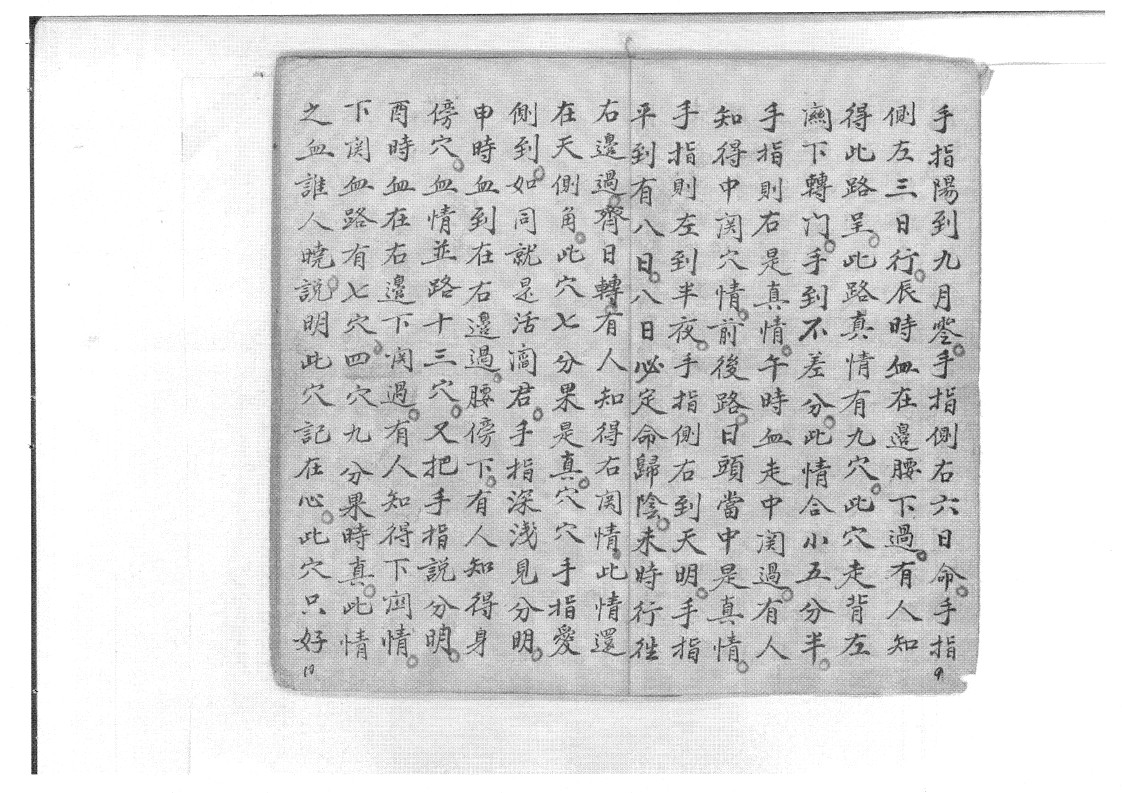 手指陽到九月零。手指側右六日命。手指
側左三日行。辰時血在邊腰下過。有人知
得此路呈。此路真情有九穴。此穴走背左
下轉门。手到不差分。此情合小五分半。
手指則右是真情。午時血走中関過。有人
知得中関穴情。前後路。日頭當中是真情。
手指則左到半夜。手指側右到天明。手指
平到有八日。八日必定命歸陰。未時行徃
右邊過。齊日轉。有人知得右関情。此情還
在天側角。此穴七分果是真。穴穴手指愛
側到。如同就是活君。手指深浅見分明。
申時血到在右邊過。腰傍下。有人知得身
傍穴。血情並路十三穴。又把手指説分明。
酉時血在右邊下関過。有人知得下関情。
下関血路有七穴。四穴九分果時真。此情
之血誰人曉説。明此穴記在心。此穴只好
9
10